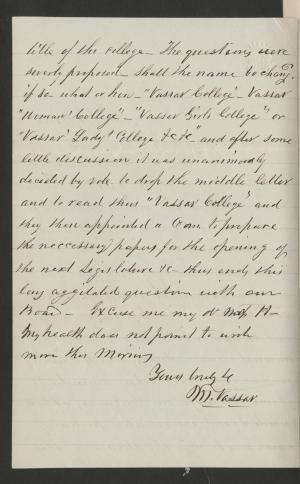 title of the college – The questions were
severly proposed – shall the name be chang'd
if so what or how – "Vassar College – Vassar
"Woman' College" – "Vassar Girls College" or
"Vassar' Lady' College &c &c" and after some
little discussion it was unanimously
decided by vote to drop the middle letter
and to read thus "Vassar College' and
they then appointed a Com. to prepare
the neccessary papers for the opening of
the next Legislature &c – thus ends this
long aggitated question with our
Board – Excuse me my d
My health does not permit to write
more this Morning
Yours truly &c
M. Vassar